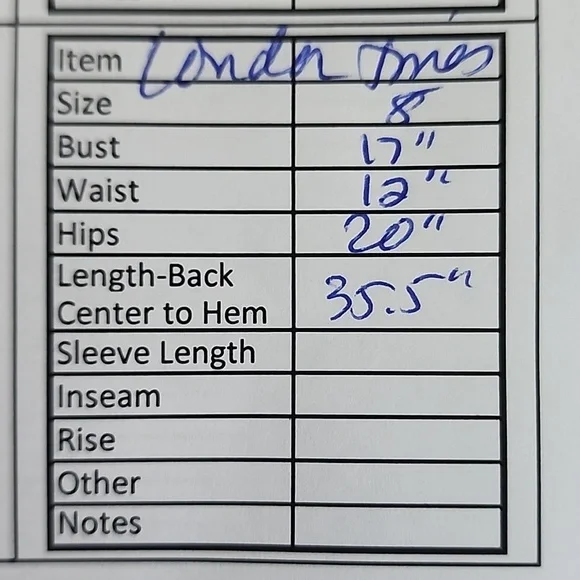 Item London Times
Size 8
Bust 17"
Waist 12"
Hips 20"
Length-Back
Center to Hem 35.5"
Sleeve Length
Inseam
Rise
Other
Notes